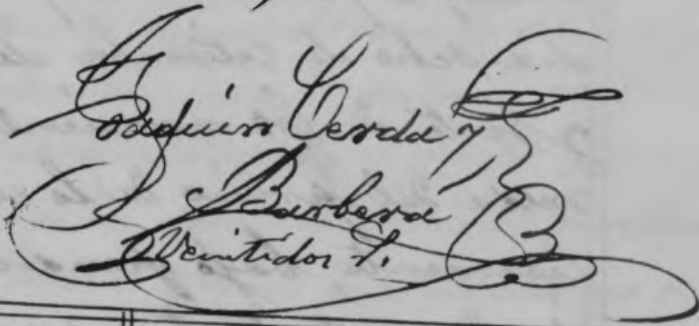 Joaquín Cerda y
Barberá
Veintidos S.